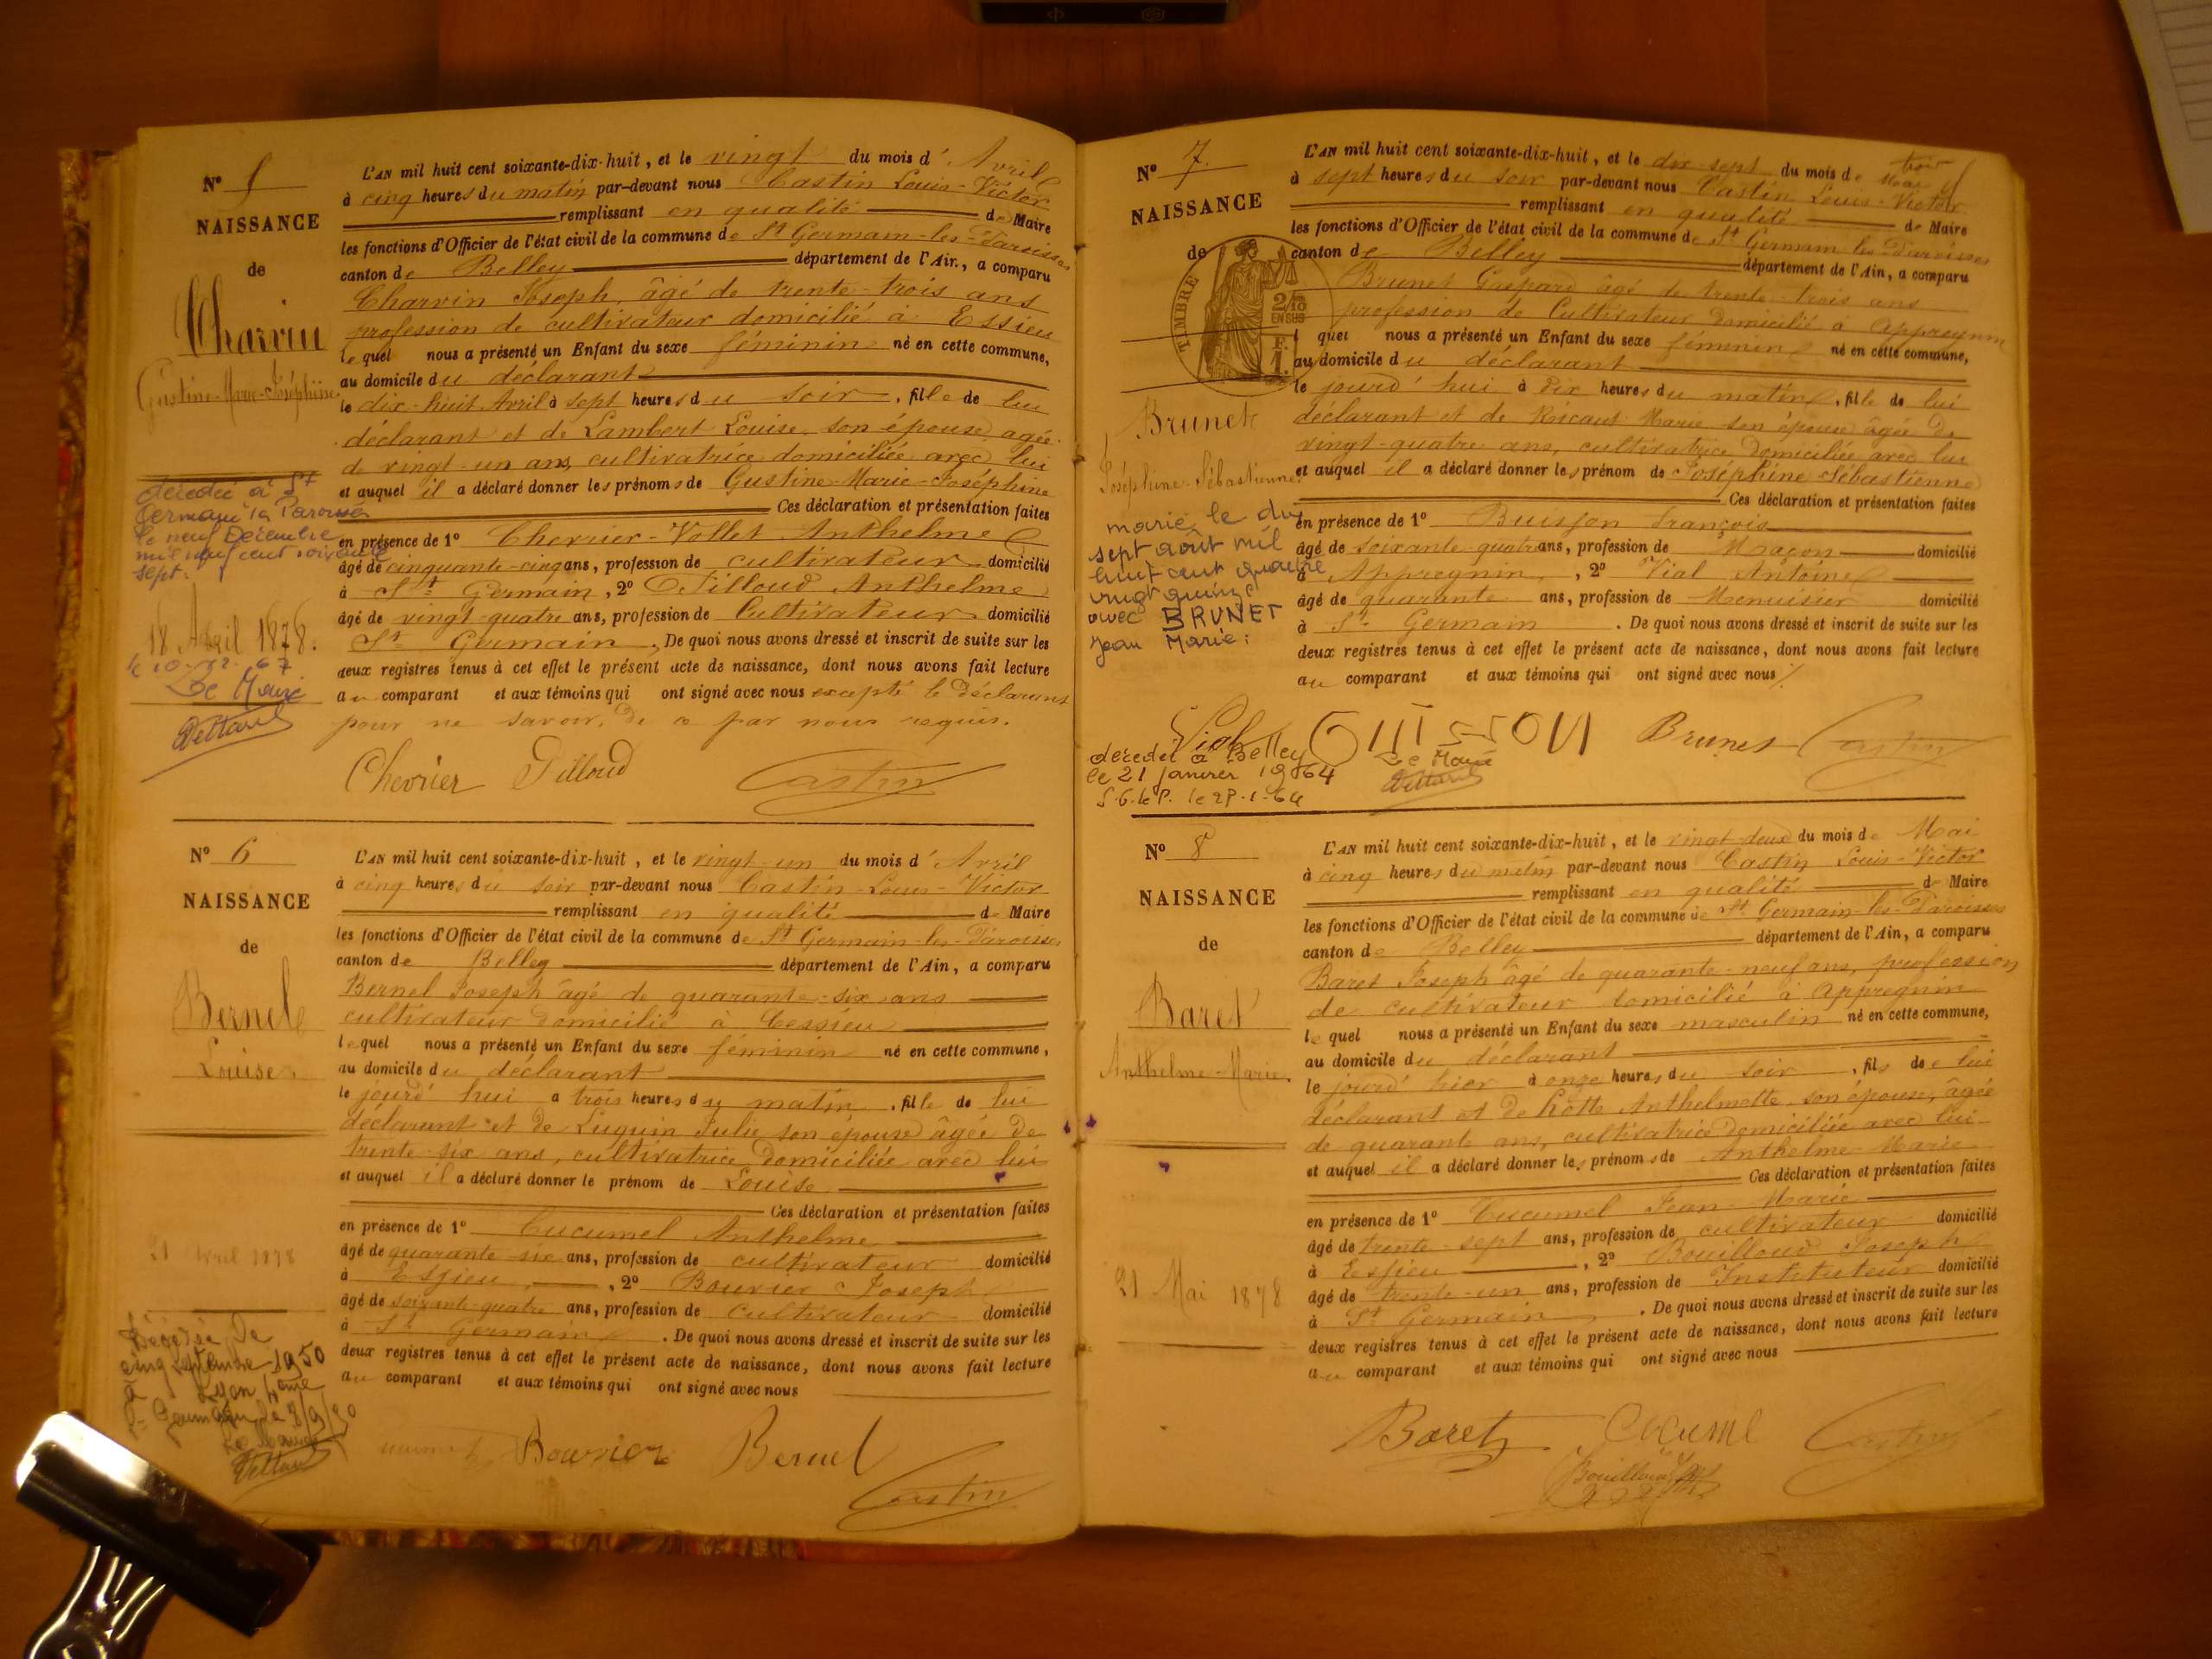 N° 5
NAISSANCE
de
Charvin
Gustine-Marie-Joséphine
décédée à St
Germain les Paroisses
le neuf Décembre
mil neuf cent soixante
sept.
18 Avril 1878.
le 10-12-67
Le Maire
L'AN mil huit cent soixante-dix-huit, et le vingt du mois d'Avril
à cinq heures du matin par-devant nous Castin Louis-Victor
remplissant en qualité de Maire
les fonctions d'Officier de l'état civil de la commune de St Germain-les-Paroisses
canton de Belley département de l'Ain, a comparu
Charvin Joseph, âgé de trente-trois ans
profession de cultivateur domicilié à Essieu
lequel nous a présenté un Enfant du sexe féminin né en cette commune,
au domicile du déclarant
le dix-huit Avril à sept heures du soir, fille de lui
déclarant et de Lambert Louise son épouse agée
de vingt-un ans, cultivatrice domiciliée avec lui
et auquel il a déclaré donner les prénoms de Gustine-Marie-Joséphine
Ces déclaration et présentation faites
en présence de 1° Chevrier-Vollet Anthelme
âgé de cinquante-cinq ans, profession de cultivateur domicilié
à St Germain, 2° Tilloud Anthelme
âgé de vingt-quatre ans, profession de Cultivateur domicilié
St Germain. De quoi nous avons dressé et inscrit de suite sur les
deux registres tenus à cet effet le présent acte de naissance, dont nous avons fait lecture
au comparant et aux témoins qui ont signé avec nous excepté le déclarant
pour ne savoir, de ce par nous requis.
Chevrier Tilloud Castin
N° 6
NAISSANCE
de
Bernel
Louise
21 Avril 1878
Décédée le
cinq septembre 1950
à Lyon 4ème
St Germain le 8/9/50
Le Maire
L'AN mil huit cent soixante-dix-huit, et le vingt-un du mois d'Avril
à cinq heures du soir par-devant nous Castin-Louis-Victor
remplissant en qualité de Maire
les fonctions d'Officier de l'état civil de la commune de St Germain-les-Paroisses
canton de Belley département de l'Ain, a comparu
Bernel Joseph âgé de quarante-six ans
cultivateur domicilié à Cessieu
lequel nous a présenté un Enfant du sexe féminin né en cette commune,
au domicile du déclarant
le jourd'hui a trois heures du matin, fille de lui
déclarant et de Luguin Julie son épouse âgée de
trente-six ans, cultivatrice domiciliée avec lui
et auquel il a déclaré donner le prénom de Louise
Ces déclaration et présentation faites
en présence de 1° Cucumel Anthelme
âgé de quarante-six ans, profession de cultivateur domicilié
à Essieu, 2° Bouvier Joseph
âgé de soixante-quatre ans, profession de cultivateur domicilié
à St Germain. De quoi nous avons dressé et inscrit de suite sur les
deux registres tenus à cet effet le présent acte de naissance, dont nous avons fait lecture
au comparant et aux témoins qui ont signé avec nous
Bouvier Bernel
Castin
N° 7.
NAISSANCE
de
TIMBRE
2/10
EN SUS
F.
1.
Brunet
Joséphine-Sébastienne
marié le dix
sept août mil
huit cent quatre
vingt quinze
avec BRUNET
Jean Marie.
L'AN mil huit cent soixante-dix-huit, et le dix-sept du mois de Mai
à sept heures du soir par-devant nous Castin Louis-Victor
remplissant en qualité de Maire
les fonctions d'Officier de l'état civil de la commune de St Germain-les-Paroisses
canton de Belley département de l'Ain, a comparu
Brunet Gaspard âgé de trente-trois ans
profession de Cultivateur domicilié à Appregnin
l quel nous a présenté un Enfant du sexe féminin né en cette commune,
au domicile du déclarant
le jourd'hui à dix heures du matin, fille de lui
déclarant et de Ricaut Marie son épouse âgée de
vingt-quatre ans, cultivatrice domiciliée avec lui
et auquel il a déclaré donner les prénom de Joséphine-Sébastienne
Ces déclaration et présentation faites
en présence de 1° Buisson François
âgé de soixante-quatre ans, profession de Maçon domicilié
à Appregnin, 2° Vial Antoine
âgé de quarante ans, profession de Menuisier domicilié
à St Germain. De quoi nous avons dressé et inscrit de suite sur les
deux registres tenus à cet effet le présent acte de naissance, dont nous avons fait lecture
au comparant et aux témoins qui ont signé avec nous
Vial Brunet Castin
décédée à Belley
le 21 janvier 1964
S.G.le P. le 27-1-64
Le Maire
N° 8
NAISSANCE
de
Baret
Anthelme-Marie
21 Mai 1878
L'AN mil huit cent soixante-dix-huit, et le vingt-deux du mois de Mai
à cinq heures du matin par-devant nous Castin Louis-Victor
remplissant en qualité de Maire
les fonctions d'Officier de l'état civil de la commune de St Germain-les-Paroisses
canton de Belley département de l'Ain, a comparu
Baret Joseph âgé de quarante-neuf ans, profession
de cultivateur domicilié à Appregnin
le quel nous a présenté un Enfant du sexe masculin né en cette commune,
au domicile du déclarant
le jourd'hier à onze heures du soir, fils de lui
déclarant et de Hotte Anthelmette son épouse, âgée
de quarante ans, cultivatrice domiciliée avec lui
et auquel il a déclaré donner les prénoms de Anthelme-Marie
Ces déclaration et présentation faites
en présence de 1° Cucumel Jean-Marie
âgé de trente-sept ans, profession de cultivateur domicilié
à Essieu, 2° Bouilloud Joseph
âgé de trente-un ans, profession de Instituteur domicilié
à St Germain. De quoi nous avons dressé et inscrit de suite sur les
deux registres tenus à cet effet le présent acte de naissance, dont nous avons fait lecture
au comparant et aux témoins qui ont signé avec nous
Baret Cucumel Castin
Bouilloud